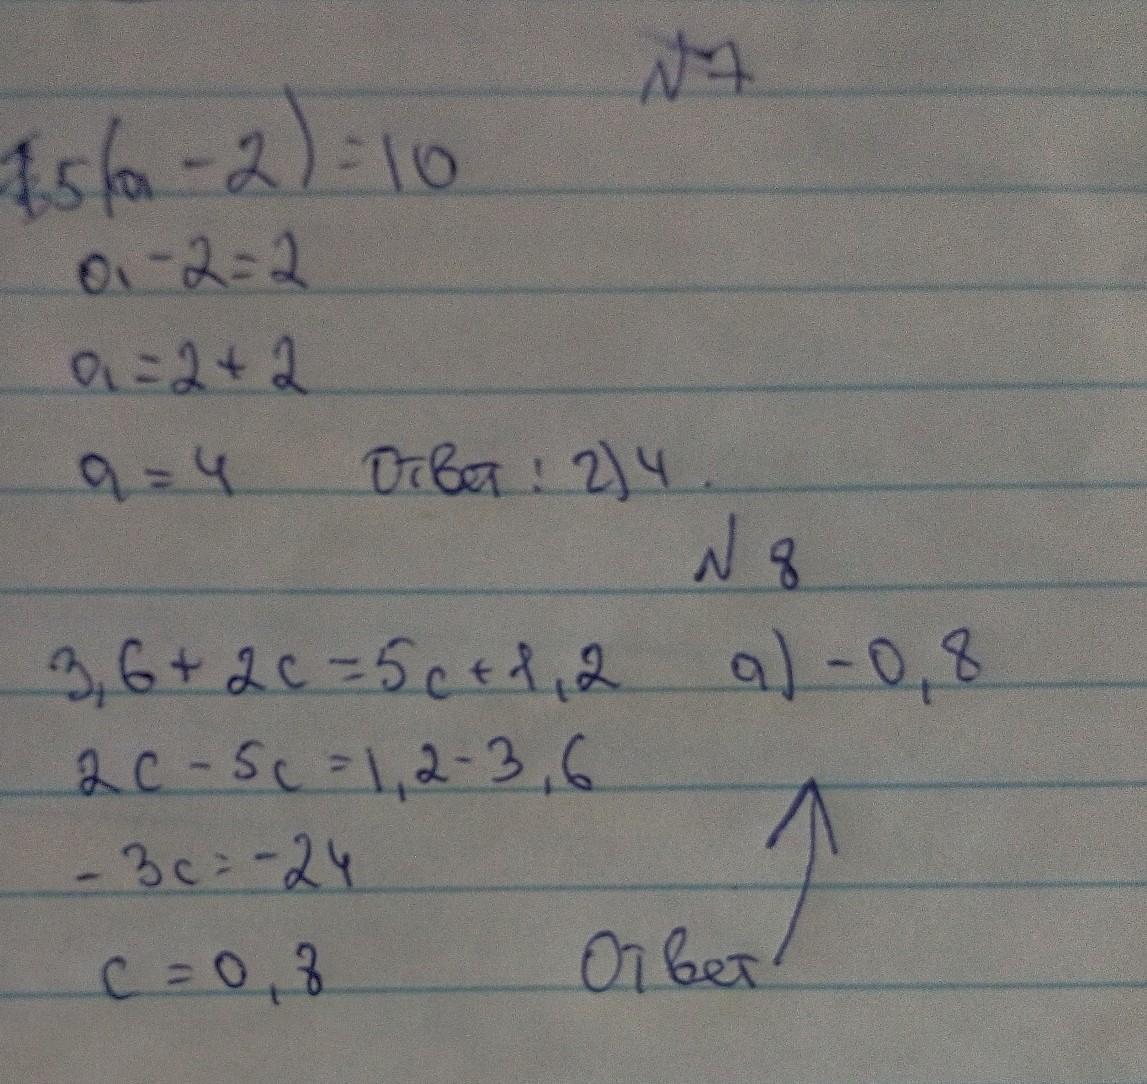 N 7
5(a - 2) = 10
a - 2 = 2
a = 2 + 2
a = 4 Ответ: 2) 4.
N 8
3,6 + 2c = 5c + 1,2 a) - 0,8
2c - 5c = 1,2 - 3,6
- 3c = - 24
c = 0,8 Ответ